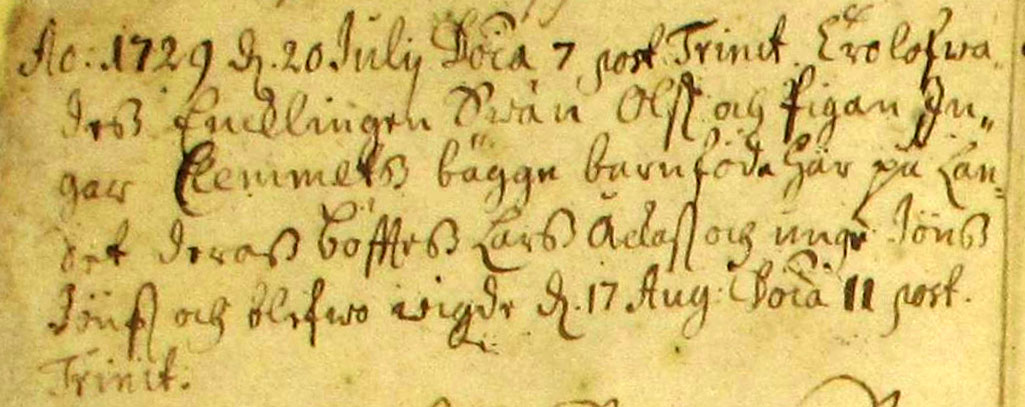 Ao: 1729 d. 20 Julij Doīca 7 post Trinit. Trolofwa,
des Encklingen Swän Olss: och Pigan In,,
gar Klemmets bägge barnföda här på Lan,
det deras Löfftes Lars Ådass och unge Jöns
Jönss och blefwo wigde d. 17 Aug: Doīca 11 post.
Trinit: